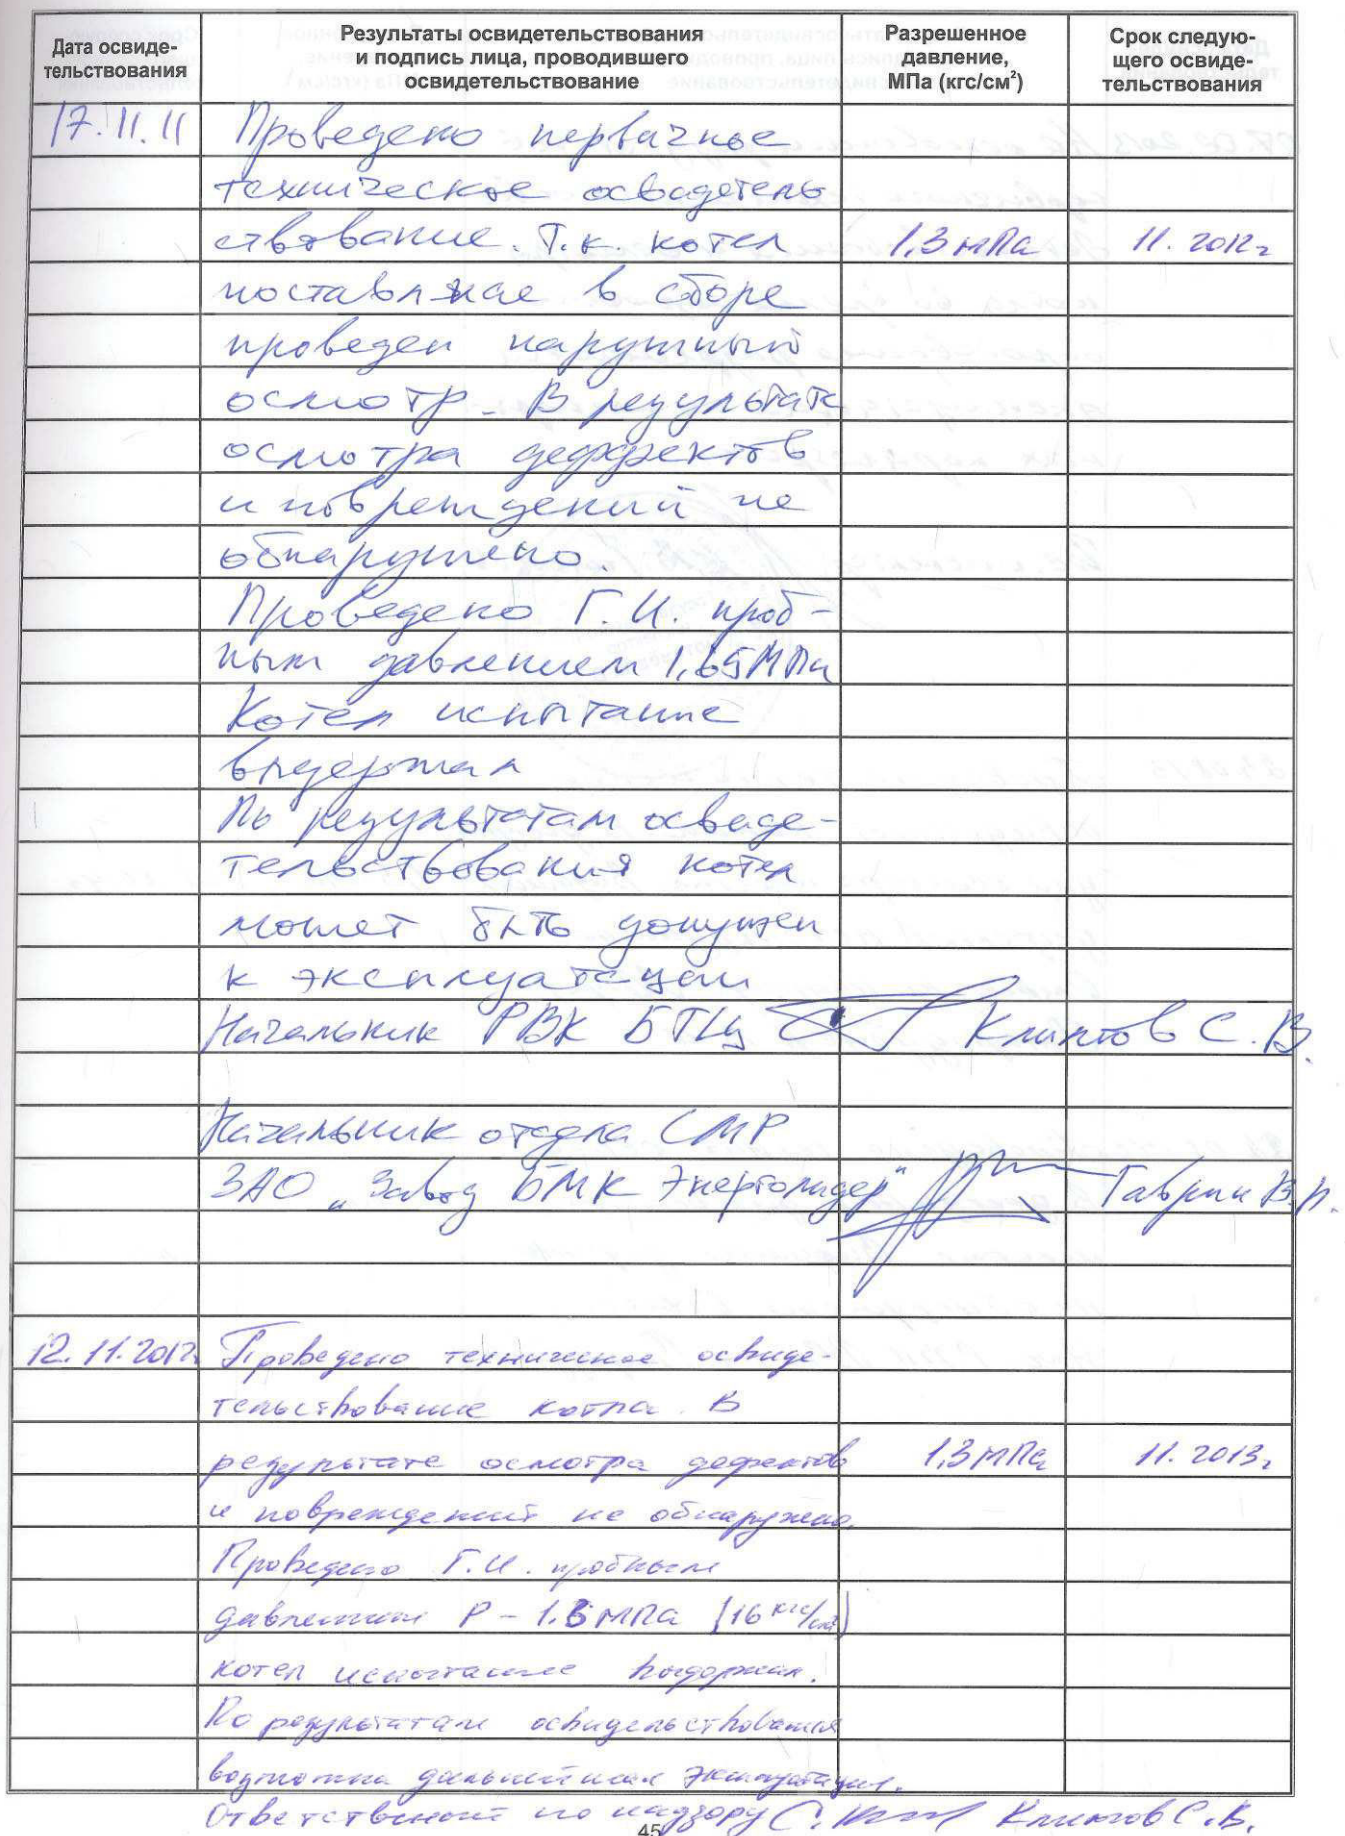 Дата освиде-
тельствования
Результаты освидетельствования
и подпись лица, проводившего
освидетельствование
Разрешенное
давление,
МПа (кгс/см²)
Срок следую-
щего освиде-
тельствования
17.11.11 Проведено первичное
техническое освидетель
ствование. Т.к. котел 1,3 мПа 11.2012г
поставлен в сборе
проведен наружный
осмотр. В результате
осмотра деффектов
и повреждений не
обнаружено.
Проведено Г.И. проб-
ным давлением 1,65 МПа
Котел испытание
выдержал
По результатам освиде-
тельствования котел
может быть допущен
к эксплуатации
Начальник РВК БТЦ С.В.
Начальник отдела СМР
ЗАО „Завод БМК Энерголидер" Гаврин В.П.
12.11.2012г. Проведено техническое освиде-
тельствование котла. В
результате осмотра дефектов 1,3 мПа 11.2013г
и повреждений не обнаружено.
Проведено Г.И. пробным
давлением Р - 1.6 мПа (16 кгс/см²)
котел испытание выдержал.
По результатам освидельствования
возможна дальнейшая эксплуатация.
Ответственный по надзору С.В.
45